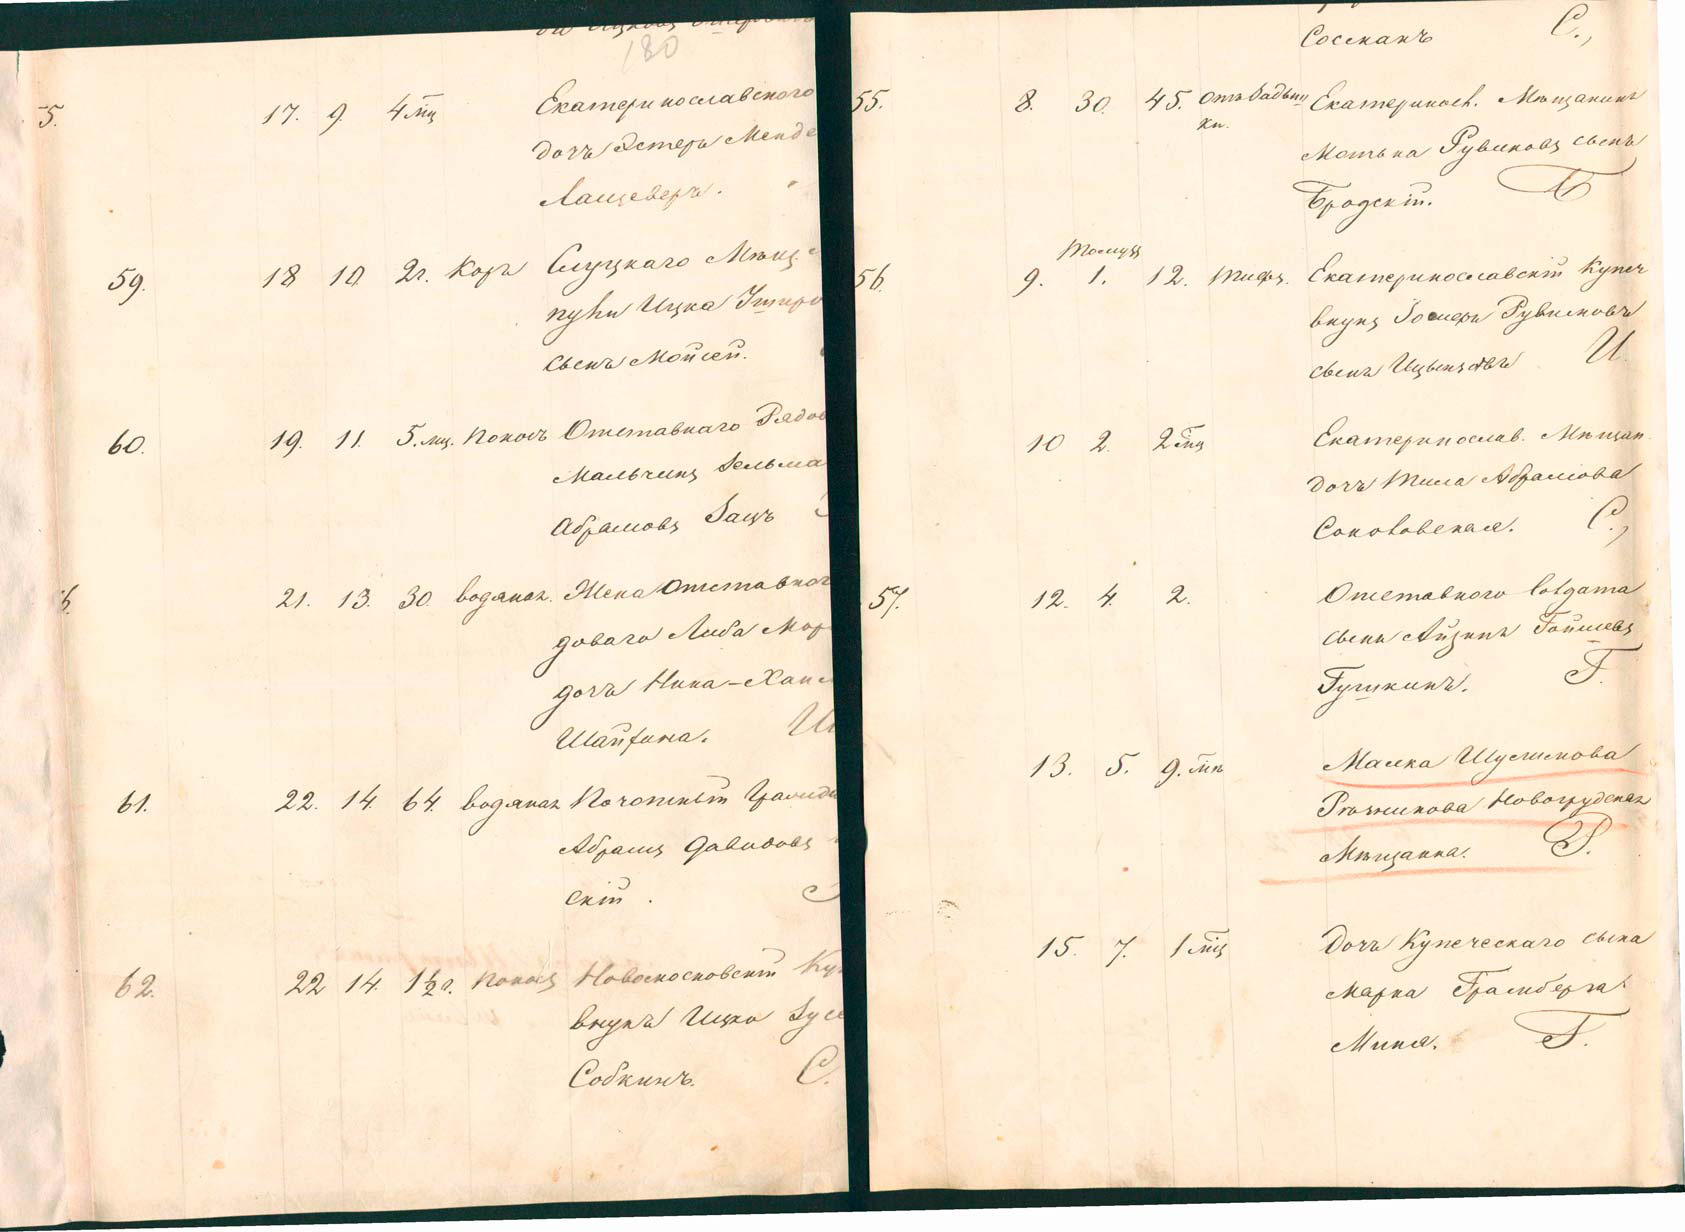 180
5. 17. 9. 4 мц Екатеринославского
дочь Эстеръ Менде
Ланцеверъ.
59. 18 10 2г. Корь Слуцкаго Мѣщ
Ицка
сынъ Мойсей.
60. 19. 11. 5. мц. Поносъ Отставнаго Рядов
Мальчикъ Зельма
Абрамовъ Зацъ
21. 13. 30 водяная. Жена Отставног
доваго Либа Мор
дочь Нина-Хан
Шайфина.
61. 22. 14. 64. водяная Почотный Гражда
Абрамъ Давидовъ
скій.
62. 22 14. 1½г. Поносъ Новомосковскій Куп
внукъ Ицко Зус
Собкинъ. С.
Соснанъ С.,
55. 8. 30. 45. Екатеринос. Мѣщанинъ
Рувиновъ сынъ
Бродскій. Б
Томузъ
56. 9. 1. 12. Тифъ. Екатеринославскій Купеч
внукъ Рувиновъ
сынъ И.
10 2. 2 мц Екатеринослав. Мѣщан.
дочь Абрамова
Соколовская. С.,
57. 12. 4. 2. Отставного Солдата
сынъ Айзикъ
Гушкинъ. Г.
13. 5. 9. мц Малка Шулимова
Рѣзникова Новогрудская
Мѣщанка. Р.
15. 7. 1 мц Дочь Купеческаго сына
Марка Грамберга
Миня. Г.